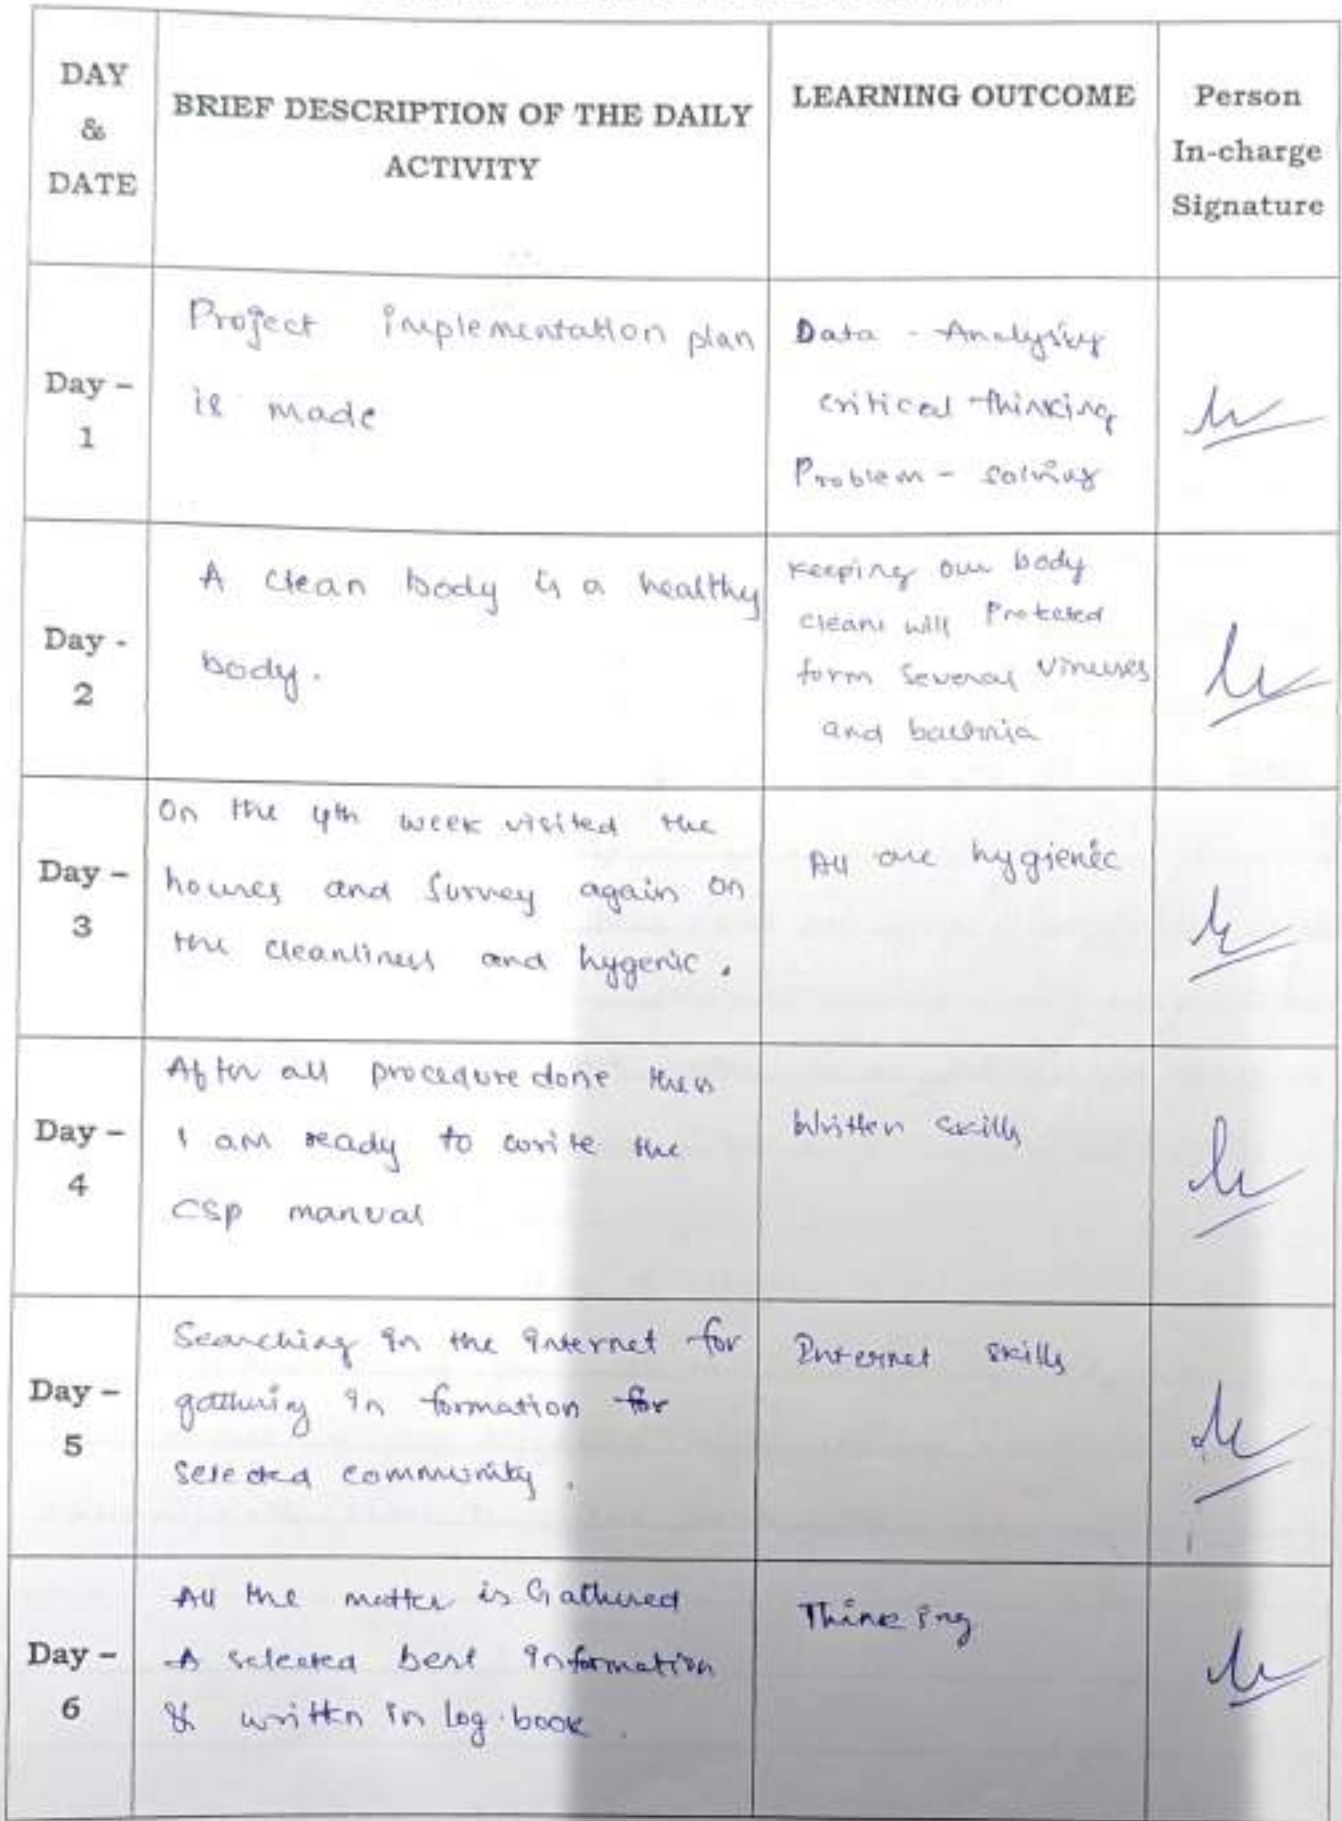 DAY
&
DATE
BRIEF DESCRIPTION OF THE DAILY
ACTIVITY
LEARNING OUTCOME
Person
In-charge
Signature
Day –
1
Project implementation plan
is made
Data - Analysing
critical thinking
Problem - solving
Day -
2
A clean body is a healthy
body.
Keeping our body
cleans will Proteted
form several viruses
and bacteria
Day –
3
On the 4th week visited the
houses and survey again on
the cleanliness and hygenic.
All are hygienic
Day –
4
After all procedure done then
I am ready to write the
CSP manual
Written skills
Day –
5
Searching in the internet for
gathering in formation for
selected community.
Internet skills
Day –
6
All the matter is Gathered
A selected best information
& written in log book.
Thinking